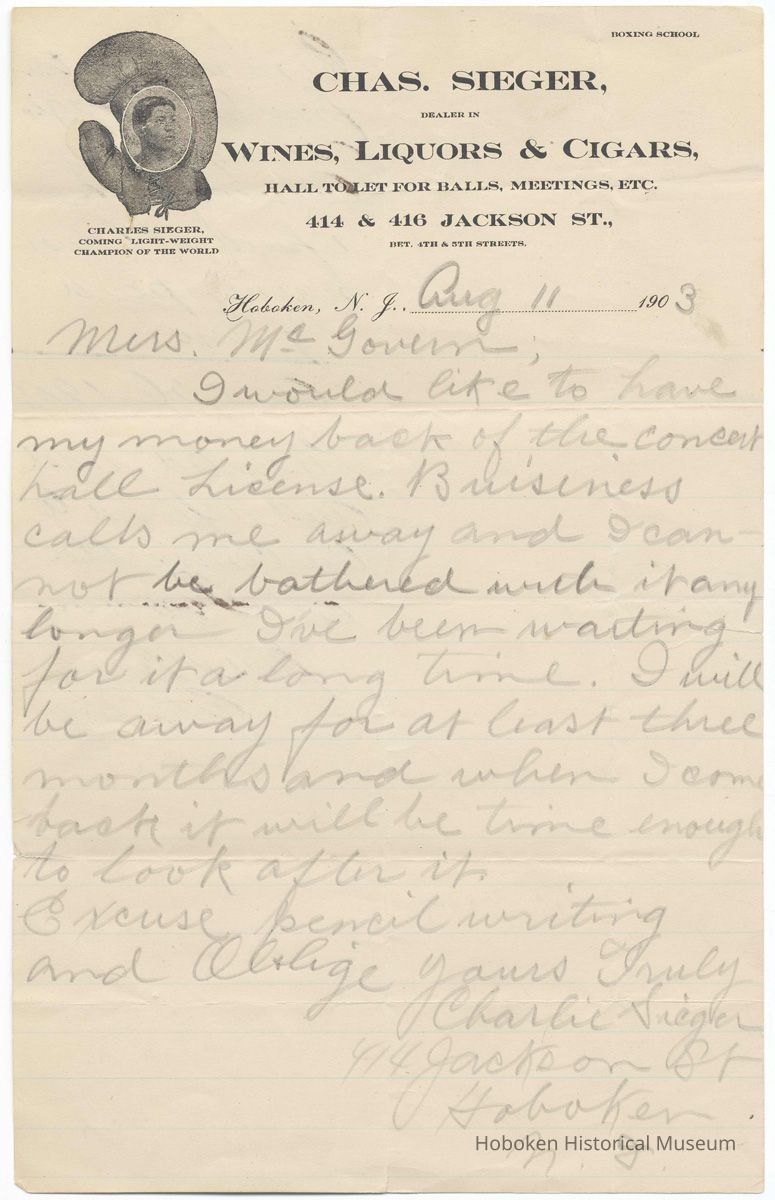 BOXING SCHOOL
CHAS. SIEGER,
DEALER IN
WINES, LIQUORS & CIGARS,
HALL TO LET FOR BALLS, MEETINGS, ETC.
414 & 416 JACKSON ST.,
BET. 4TH & 5TH STREETS.
CHARLES SIEGER,
COMING LIGHT-WEIGHT
CHAMPION OF THE WORLD
Hoboken, N. J., Aug 11 1903
Mers. Mc Govern;
I would like to have
my money back of the concert
hall License. Buisiness
calls me away and I can-
not be bathered with it any
longer I've been waiting
for it a long time. I will
be away for at least three
months and when I come
back it will be time enough
to look after it.
Excuse pencil writing
and Oblige yours Truly
Charlie Sieger
414 Jackson St
Hoboken
N. J.
Hoboken Historical Museum